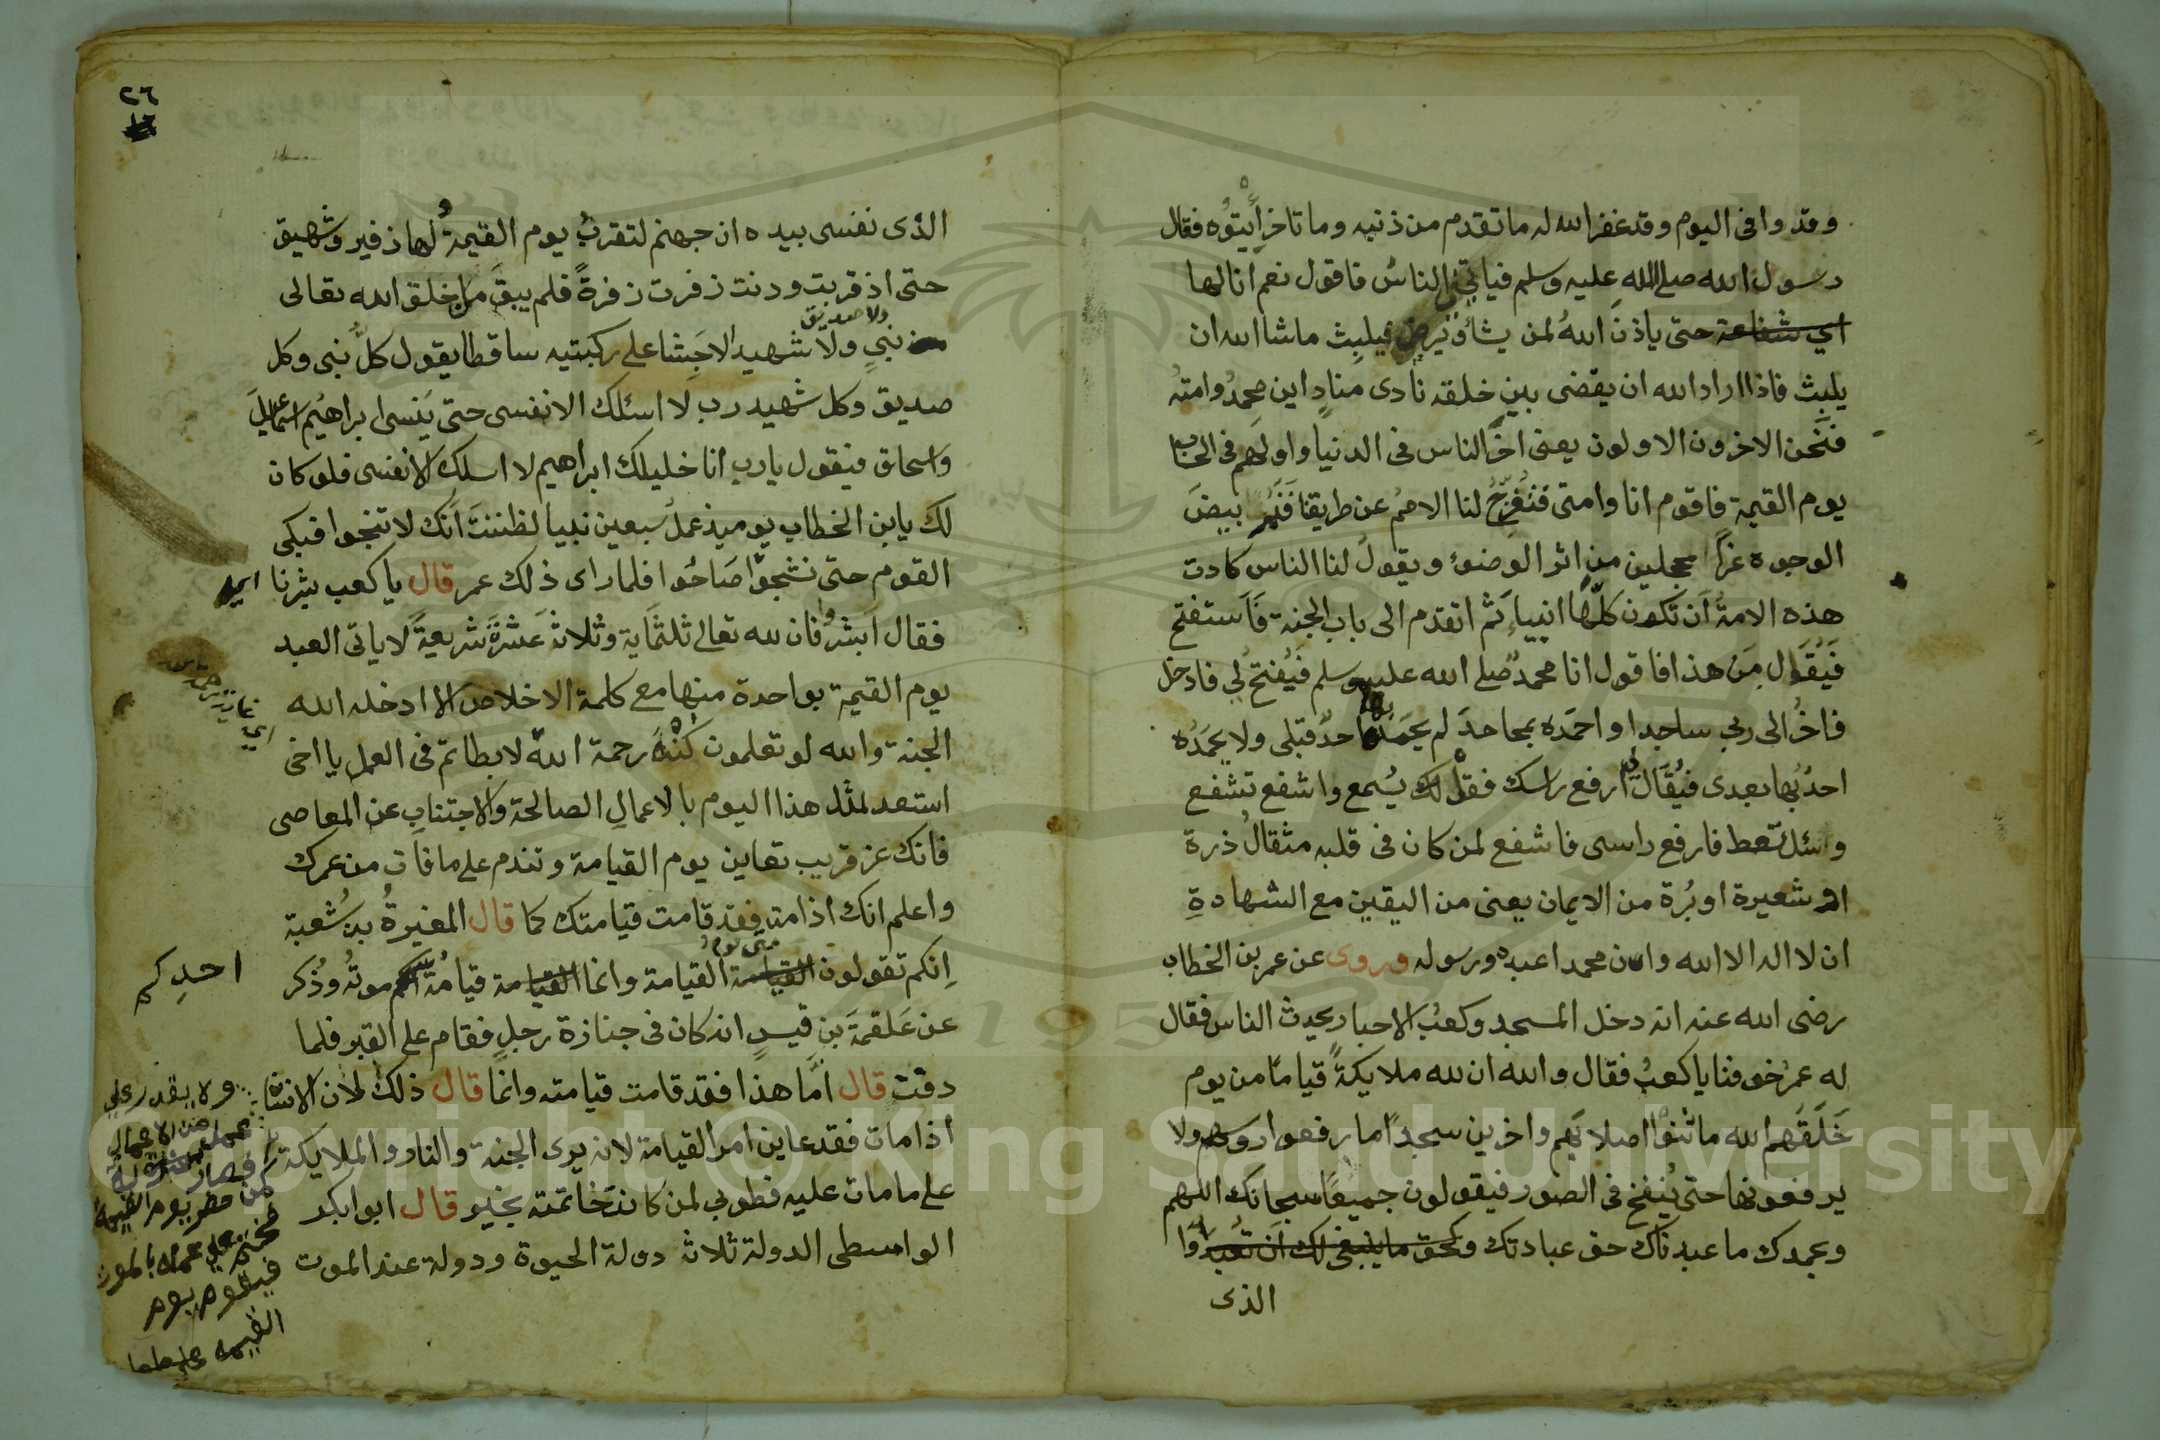 وقد وافى اليوم وقد غفر الله له ما تقدم من ذنبه وما تاخر أيتوه فقال
رسول الله صلى الله عليه وسلم فياتي الناس فاقول نعم انا لها
اي شفاعة حتى ياذن الله لمن يشاء ويرضى فيلبث ماشا الله ان
يلبث فاذا اراد الله ان يقضى بين خلقه نادى مناد اين محمد وامته
فنحن الاخرون الاولون يعنى اخر الناس فى الدنيا واولهم فى الحساب
يوم القيمة فاقوم انا وامتى فتفرج لنا الامم عن طريقنا فنمر بيض
الوجوه غرا محجلين من اثر الوضوء ويقول لنا الناس كادت
هذه الامة أن تكون كلها انبياء ثم اتقدم الى باب الجنة فاستفتح
فيقال من هذا فاقول انا محمد صلى الله عليه وسلم فيفتح لي فادخل
فاخر الى ربي ساجدا واحمده بمحامد لم يحمده بها احد قبلى ولا يحمده
احد بها بعدى فيقال لي ارفع راسك فقل يسمع واشفع تشفع
واسئل تعط فارفع راسى فاشفع لمن كان فى قلبه مثقال ذرة
او شعيرة او برة من الايمان يعنى من اليقين مع الشهادة
ان لا اله الا الله وان محمدا عبده ورسوله وروى عن عمر بن الخطاب
رضى الله عنه انه دخل المسجد وكعب الاحبار يحدث الناس فقال
له عمر خوفنا يا كعب فقال والله ان لله ملايكة قياما من يوم
خلقهم الله ما ثنوا اصلابهم واخرين سجدا ما رفعوا روسهم ولا
يرفعونها حتى ينفخ فى الصور فيقولون جميعا سبحانك اللهم
وبحمدك ما عبدناك حق عبادتك وكحق ما ينبغى لك ان تعبد وا
الذى
٢٦
الذى نفسى بيده ان جهنم لتقرب يوم القيمة ولها زفير وشهيق
حتى اذ قربت ودنت زفرت زفرة فلم يبق من خلق الله تعالى
ولا صديق
نبي ولا شهيد الا جثا على ركبتيه ساقطا يقول كل نبى وكل
صديق وكل شهيد رب لا اسئلك الا نفسى حتى ينسى ابراهيم اسماعيل
واسحاق فيقول يارب انا خليلك ابراهيم لا اسلك الا نفسى فلو كان
لك يابن الخطاب يوميذ عمل سبعين نبيا لظننت أنك لا تنجوا فبكى
القوم حتى نشجوا صاحوا فلما راى ذلك عمر قال يا كعب بشرنا
فقال ابشروا فان لله تعالى ثلثماية وثلاث عشرة شريعة لا ياتى العبد
يوم القيمة بواحدة منها مع كلمة الاخلاص الا ادخله الله
الجنة والله لو تعلمون كنه رحمة الله لابطاتم فى العمل يا اخى
استعد لمثل هذا اليوم بالاعمال الصالحة والاجتناب عن المعاصى
فانك عن قريب تعاين يوم القيامة وتندم على ما فات من عمرك
واعلم انك اذا مت فقد قامت قيامتك كما قال المغيرة بن شعبة
متى يوم
إنكم تقولون القيامة القيامة وانما القيامة قيامة موته وذكر
احدكم
عن علقمة بن قيس انه كان فى جنازة رجل فقام على القبر فلما
دفنت قال أما هذا فقد قامت قيامته وانما قال ذلك لان الانسان
اذا مات فقد عاين امر القيامة لانه يرى الجنة والنار والملايكة
ولا يقدر على
عمل من الاعمال
فصار بمنزلة
كمن حضر يوم القيمة
فختم على عمله بالموت
فيقوم يوم
القيمه على ما
على ما مات عليه فطوبى لمن كانت خاتمته بخير قال ابو ابكر
الواسطى الدولة ثلاث دولة الحيوة ودولة عند الموت
Copyright © King Saud University
1957